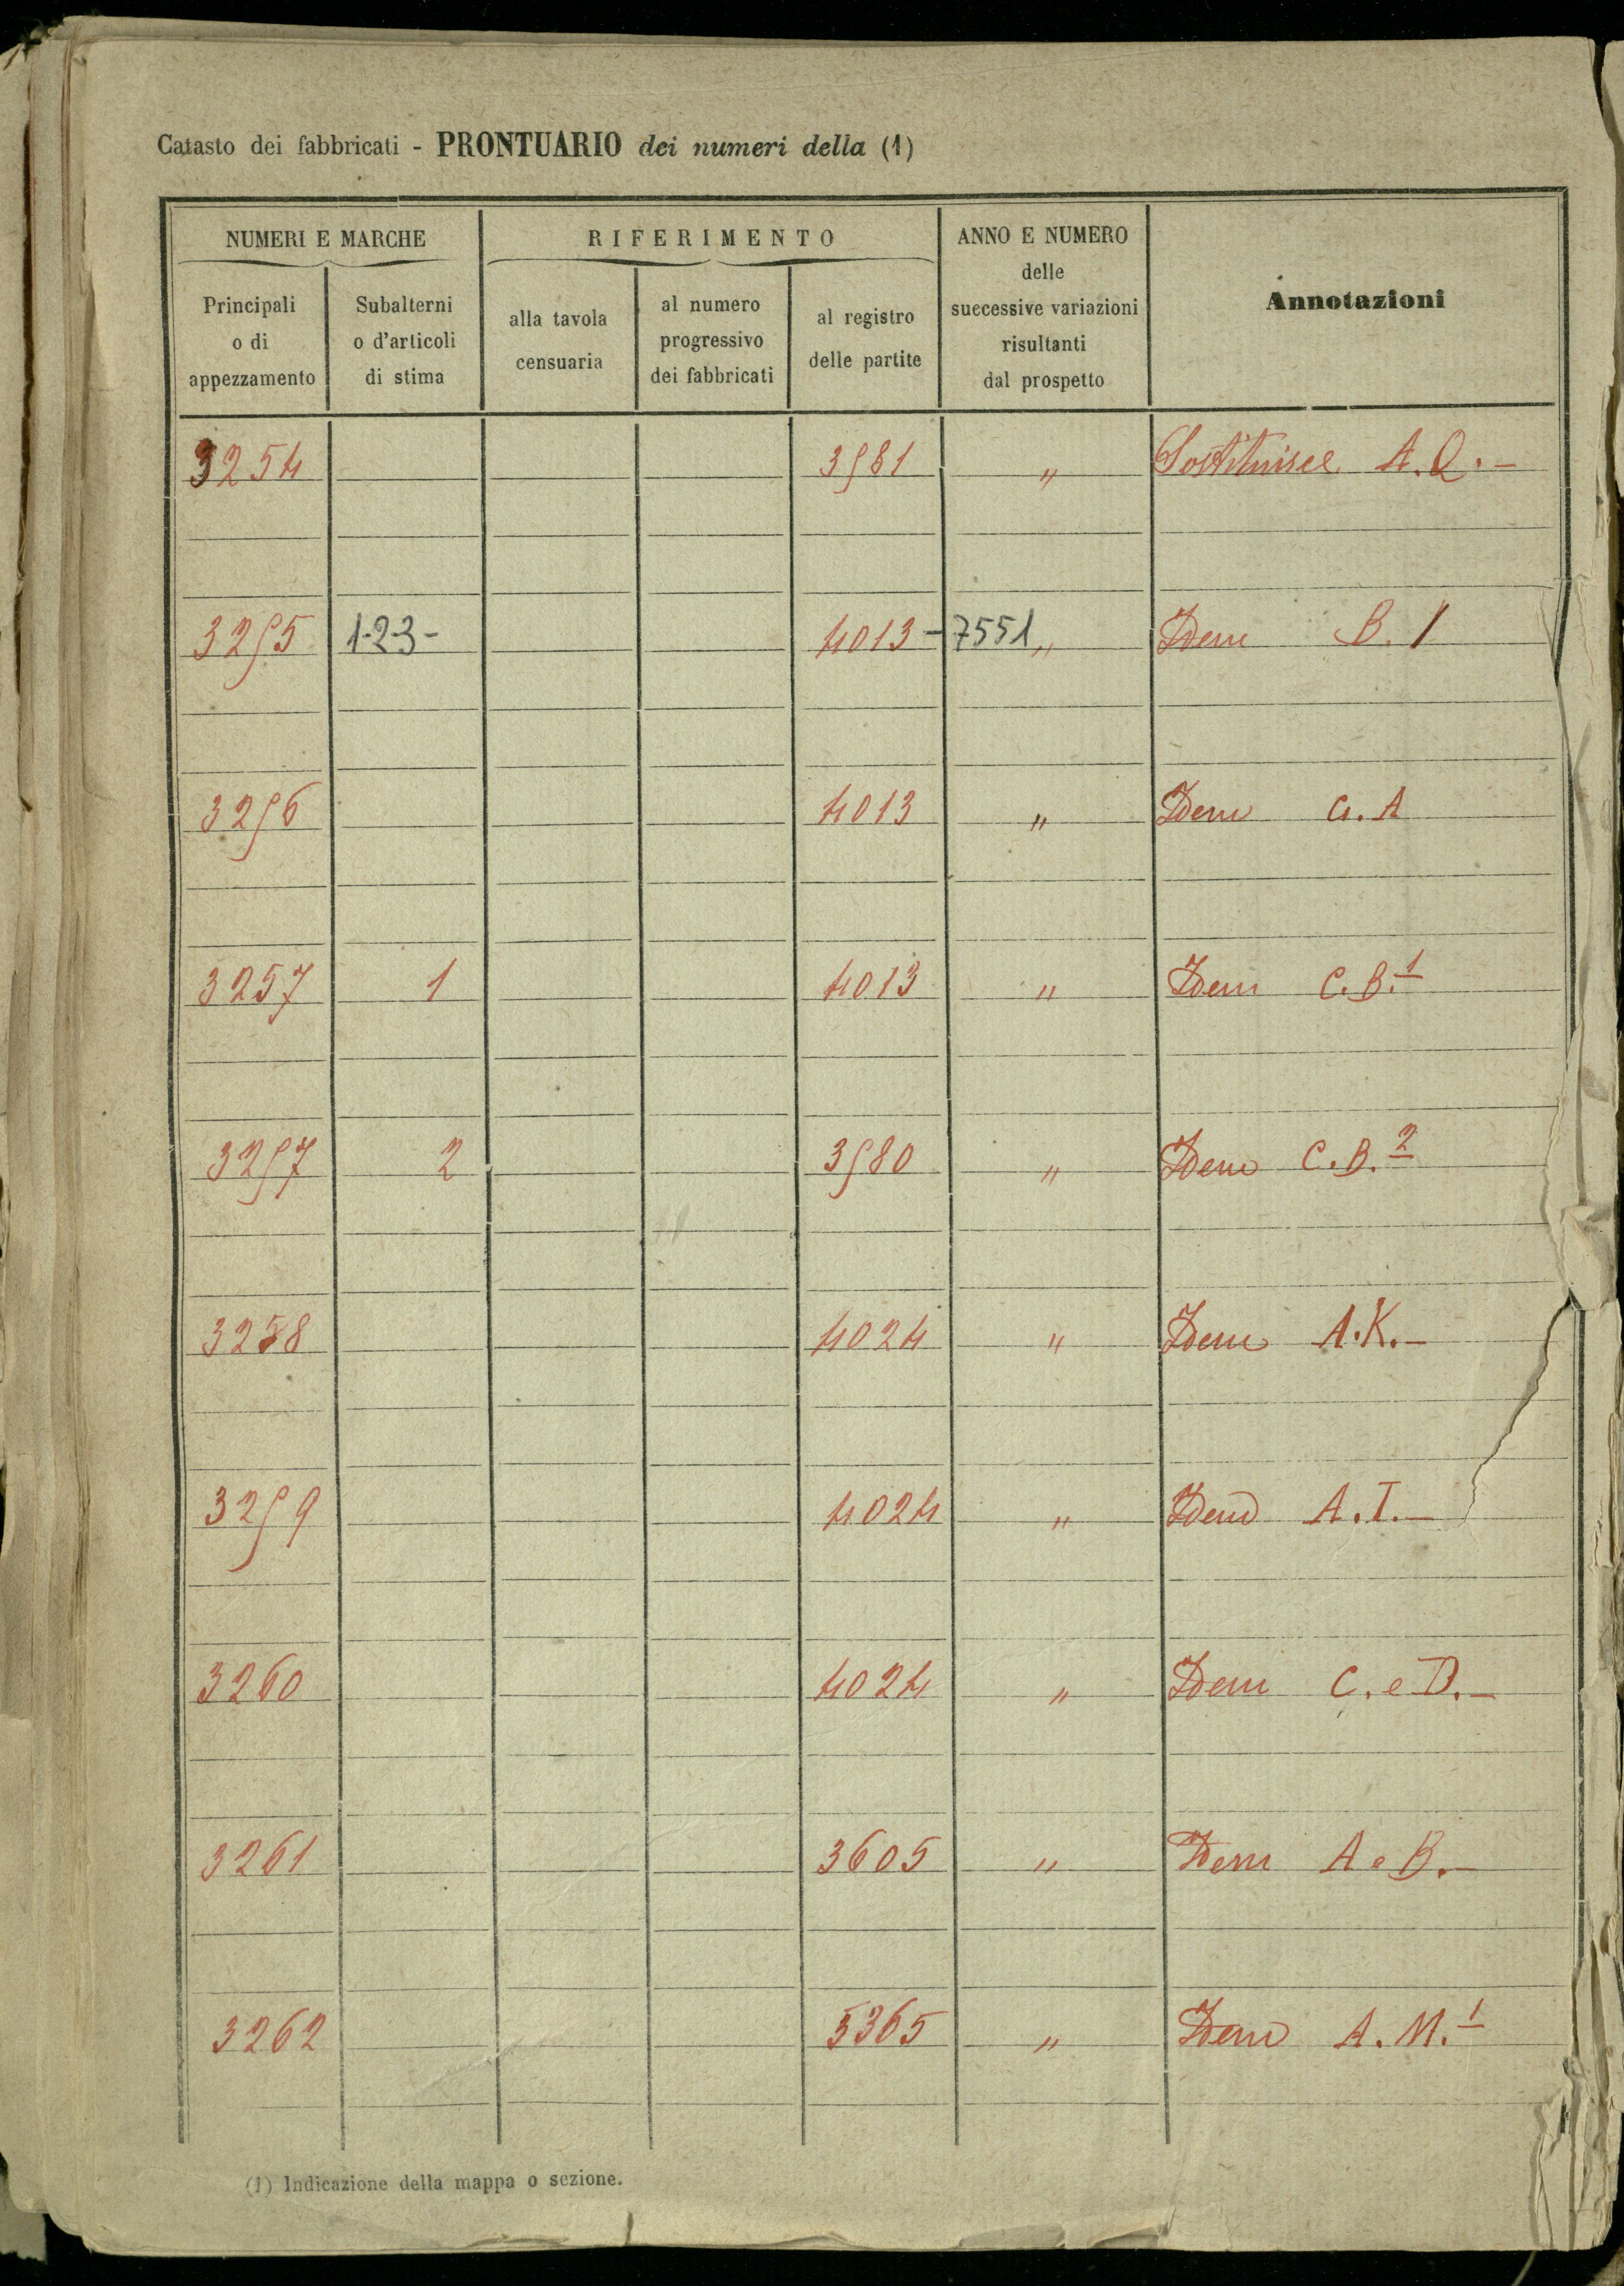 Catasto dei fabbricati - PRONTUARIO dei numeri della (1)
NUMERI E MARCHE
RIFERIMENTO
ANNO E NUMERO
delle
successive variazioni
risultanti
dal prospetto
Annotazioni
Principali
o di
appezzamento
Subalterni
o d'articoli
di stima
alla tavola
censuaria
al numero
progressivo
dei fabbricati
al registro
delle partite
3254 3581 " Sostituisce A.Q.-
3255 1-2-3- 4013 - 7551 " Idem B. 1
3256 4013 " Idem G. A
3257 1 4013 " Idem C.B.1
3257 2 3580 " Idem C.B.2
3258 4024 " Idem A.K.-
3259 4024 " Idem A.I.-
3260 4024 " Idem C. e D.-
3261 3605 " Idem A e B.-
3262 5365 " Idem A.M.1
(1) Indicazione della mappa o sezione.